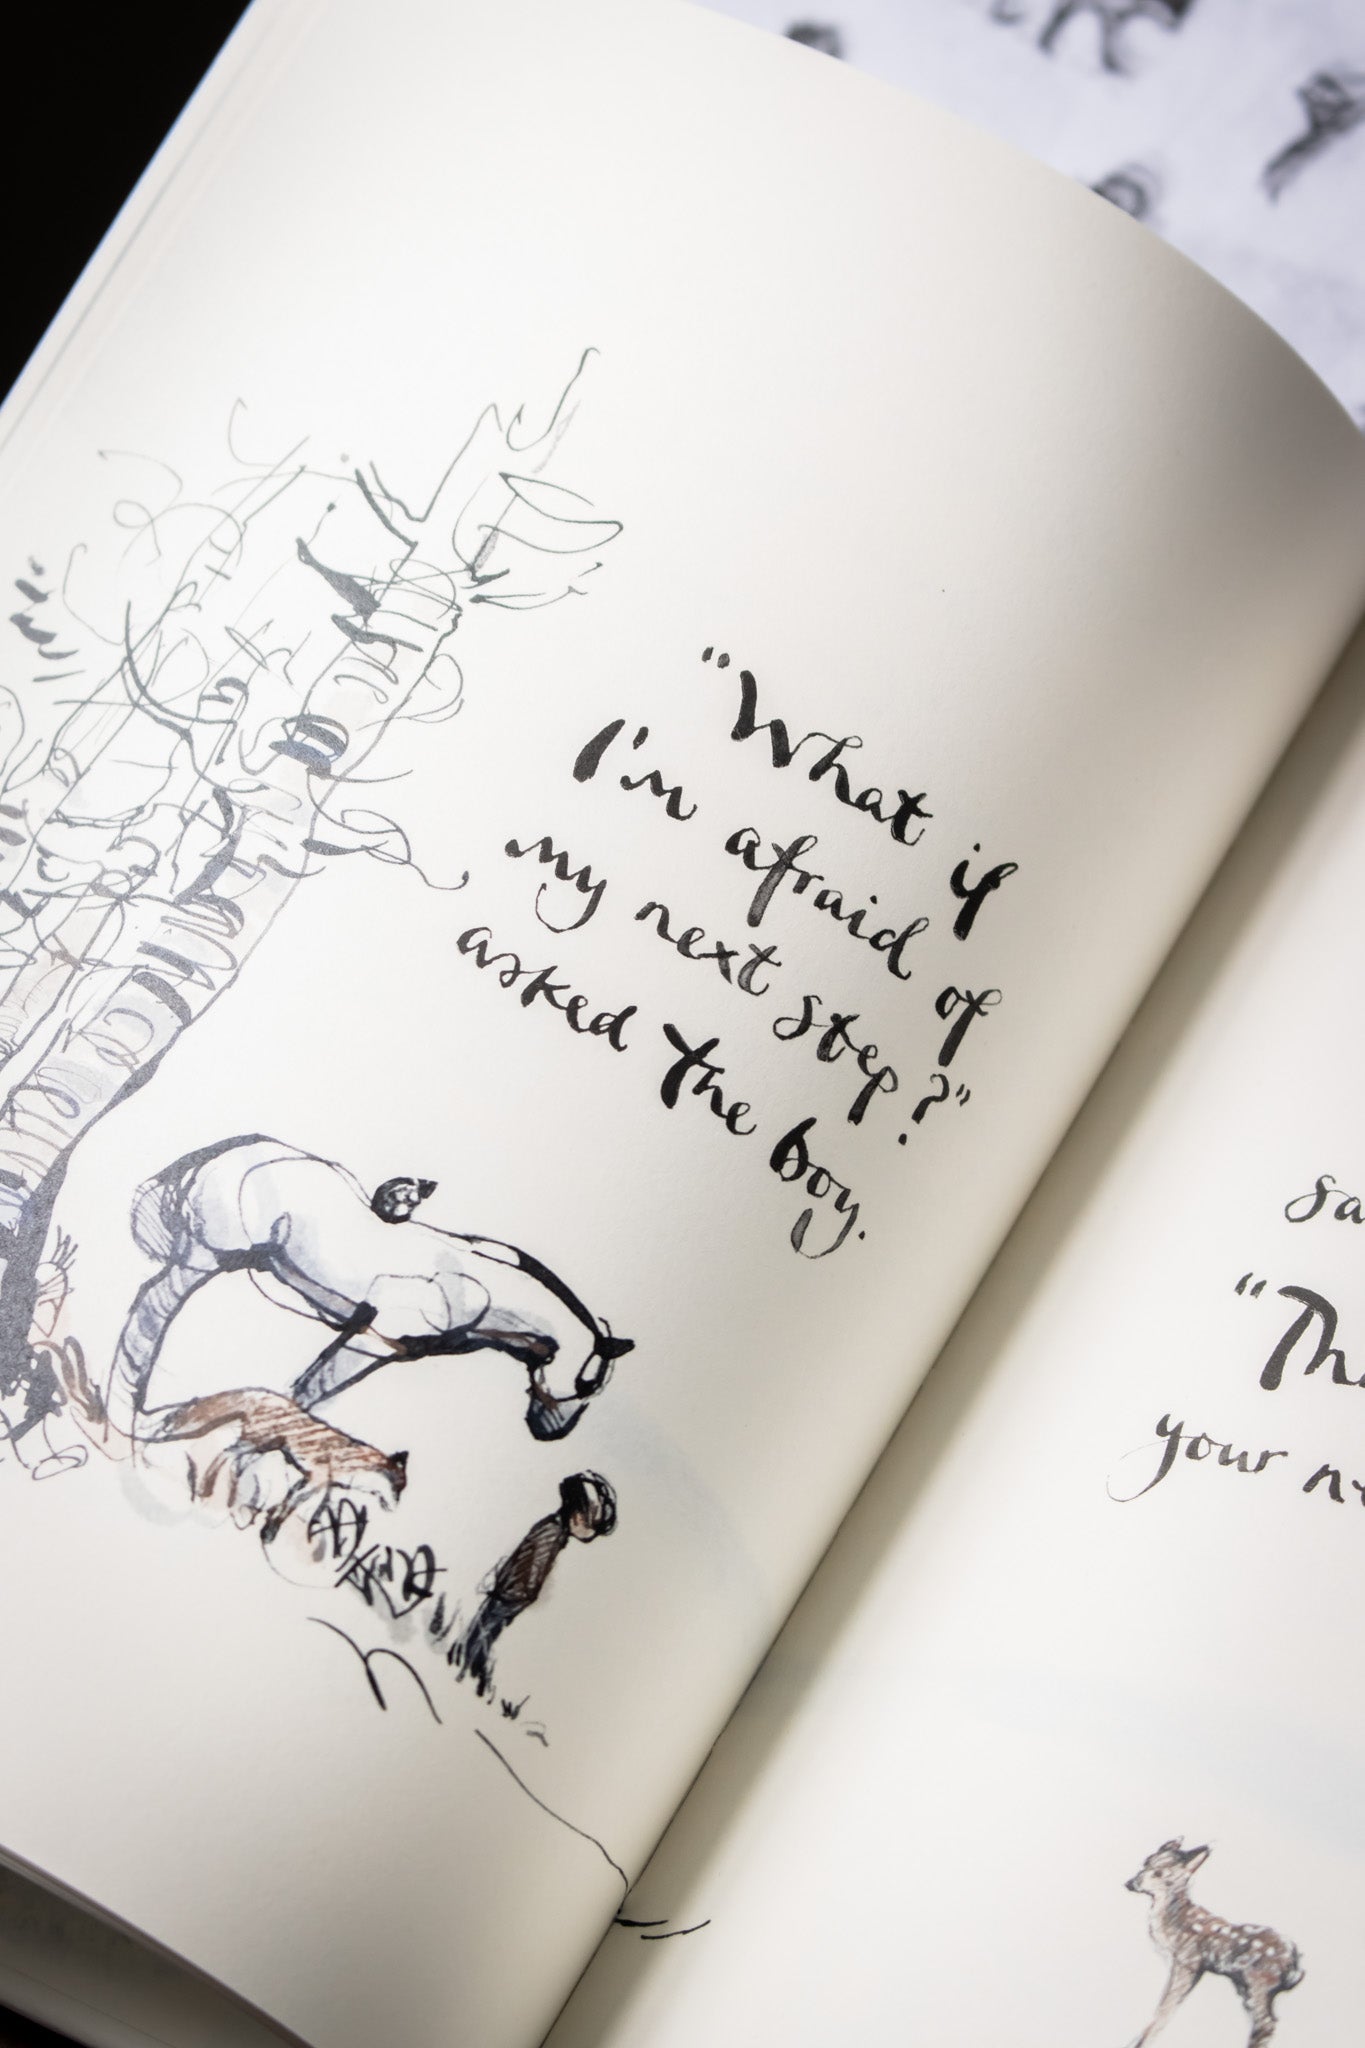 "What if
I'm afraid of
my next step?"
asked the boy.
your